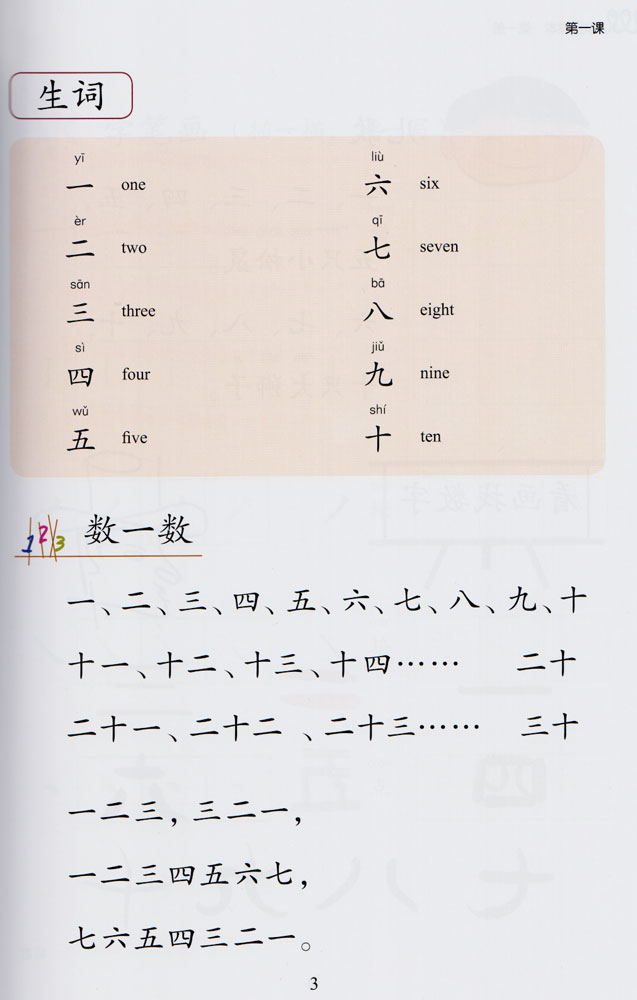 第一课
生词
yī
一 one
èr
二 two
sān
三 three
sì
四 four
wǔ
五 five
liù
六 six
qī
七 seven
bā
八 eight
jiǔ
九 nine
shí
十 ten
123 数一数
一、二、三、四、五、六、七、八、九、十
十一、十二、十三、十四…… 二十
二十一、二十二 、二十三…… 三十
一二三，三二一，
一二三四五六七，
七六五四三二一。
3